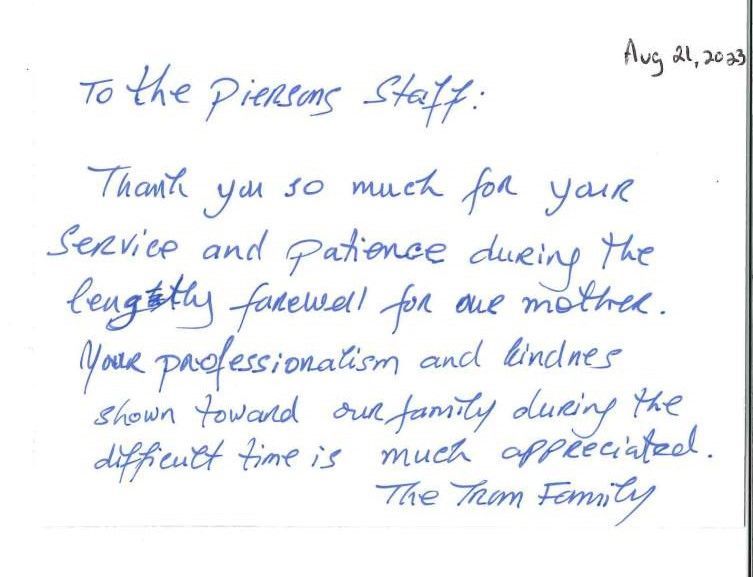 Aug 21, 2023
To the Piersons Staff:
Thank you so much for your
Service and patience during the
lengthly farewell for our mother.
Your professionalism and kindnes
shown toward our family during the
difficult time is much appreciated.
The Tram Family